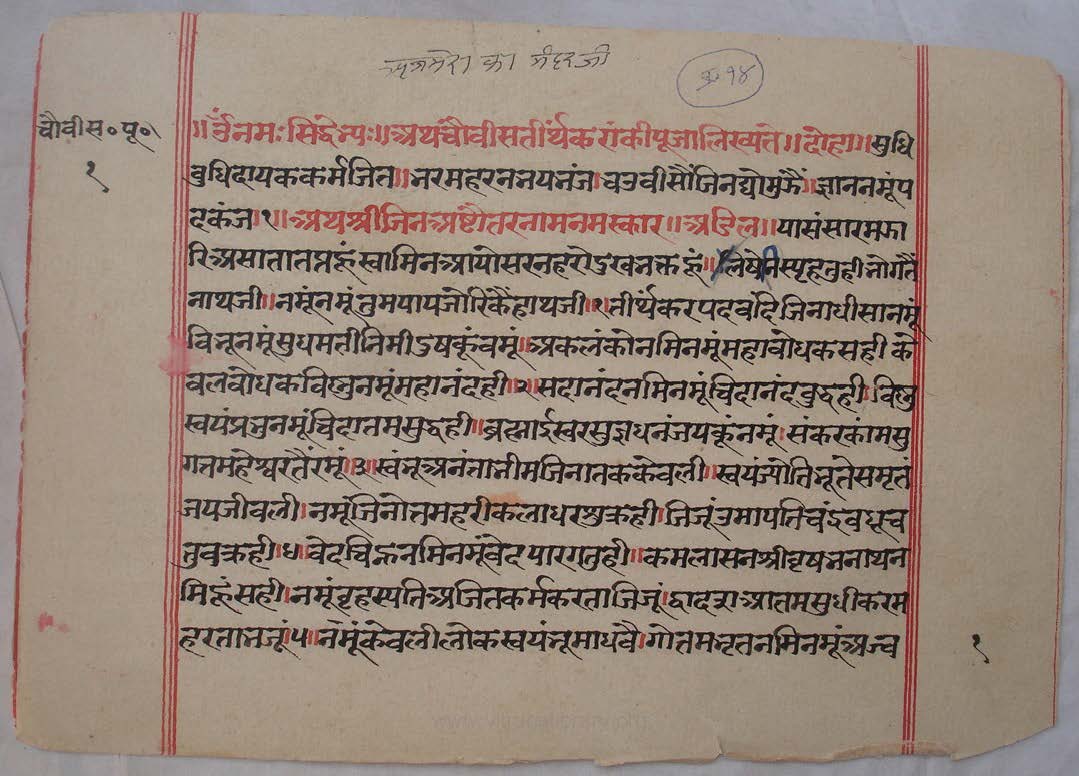 का मंदरजी
१४
चौवीस॰ पू॰
१
॥ॐनमः सिद्धेभ्यः॥अथचौवीसतीर्थकरांकीपूजालिख्यते॥दोहा॥सुधि
बुधिदायककर्मजित॥भरमहरनभयभंज।चउवीसौंजिनद्योमुझैं।ज्ञाननमूंप
दकंज१॥अथश्रीजिनअष्टोतरनामनमस्कार॥अडिल॥यासंसारमझा
रिअसातातप्तहूं।स्वामिनआयोसरनहरोदुखभक्तहूं॥
नाथजी॥नमूंनमूंतुमपायजोरिकैंहाथजी।१।तीर्थंकरपदवंदिजिनाधीसानमूं
विभूनमूंसुधमती कूंवमूं॥अकलंकोनमिनमूंमहाबोधकसहीके
वलबोधकविष्णुनमूंमहानंदही।२।सदानंदनमिनमूंचिदानंदबुद्धही।विष्णु
स्वयंप्रभुनमूंचिदातमसुद्धही॥ब्रह्माईस्वरसुद्धधनंजयकूंनमूं।संकरकांमसु
गतमहेश्वरतैंरमूं।३।स्वंभूअनंताभीमजिनातककेवली॥स्वयंज्योतिभूतेसमृतं
जयजीवली।नमूंजिनोत्तमहरीकलाधरशुक्रही।जिजूंउमापतिचंद्रवधूच
तुवक्रही।४।वेदचिह्ननमिनमूंवेदपारगतुही।कमलासनश्रीवृषभनाथन
मिहूंसही।नमूंबृहस्पतिअजितकर्मकरताजिजूं।द्वादशआतमसुधीकरम
हरताभजूं।५।नमूंकेवलीलोकस्वयंभूमाधवै।गोतम नमिनमूंअच्य
१